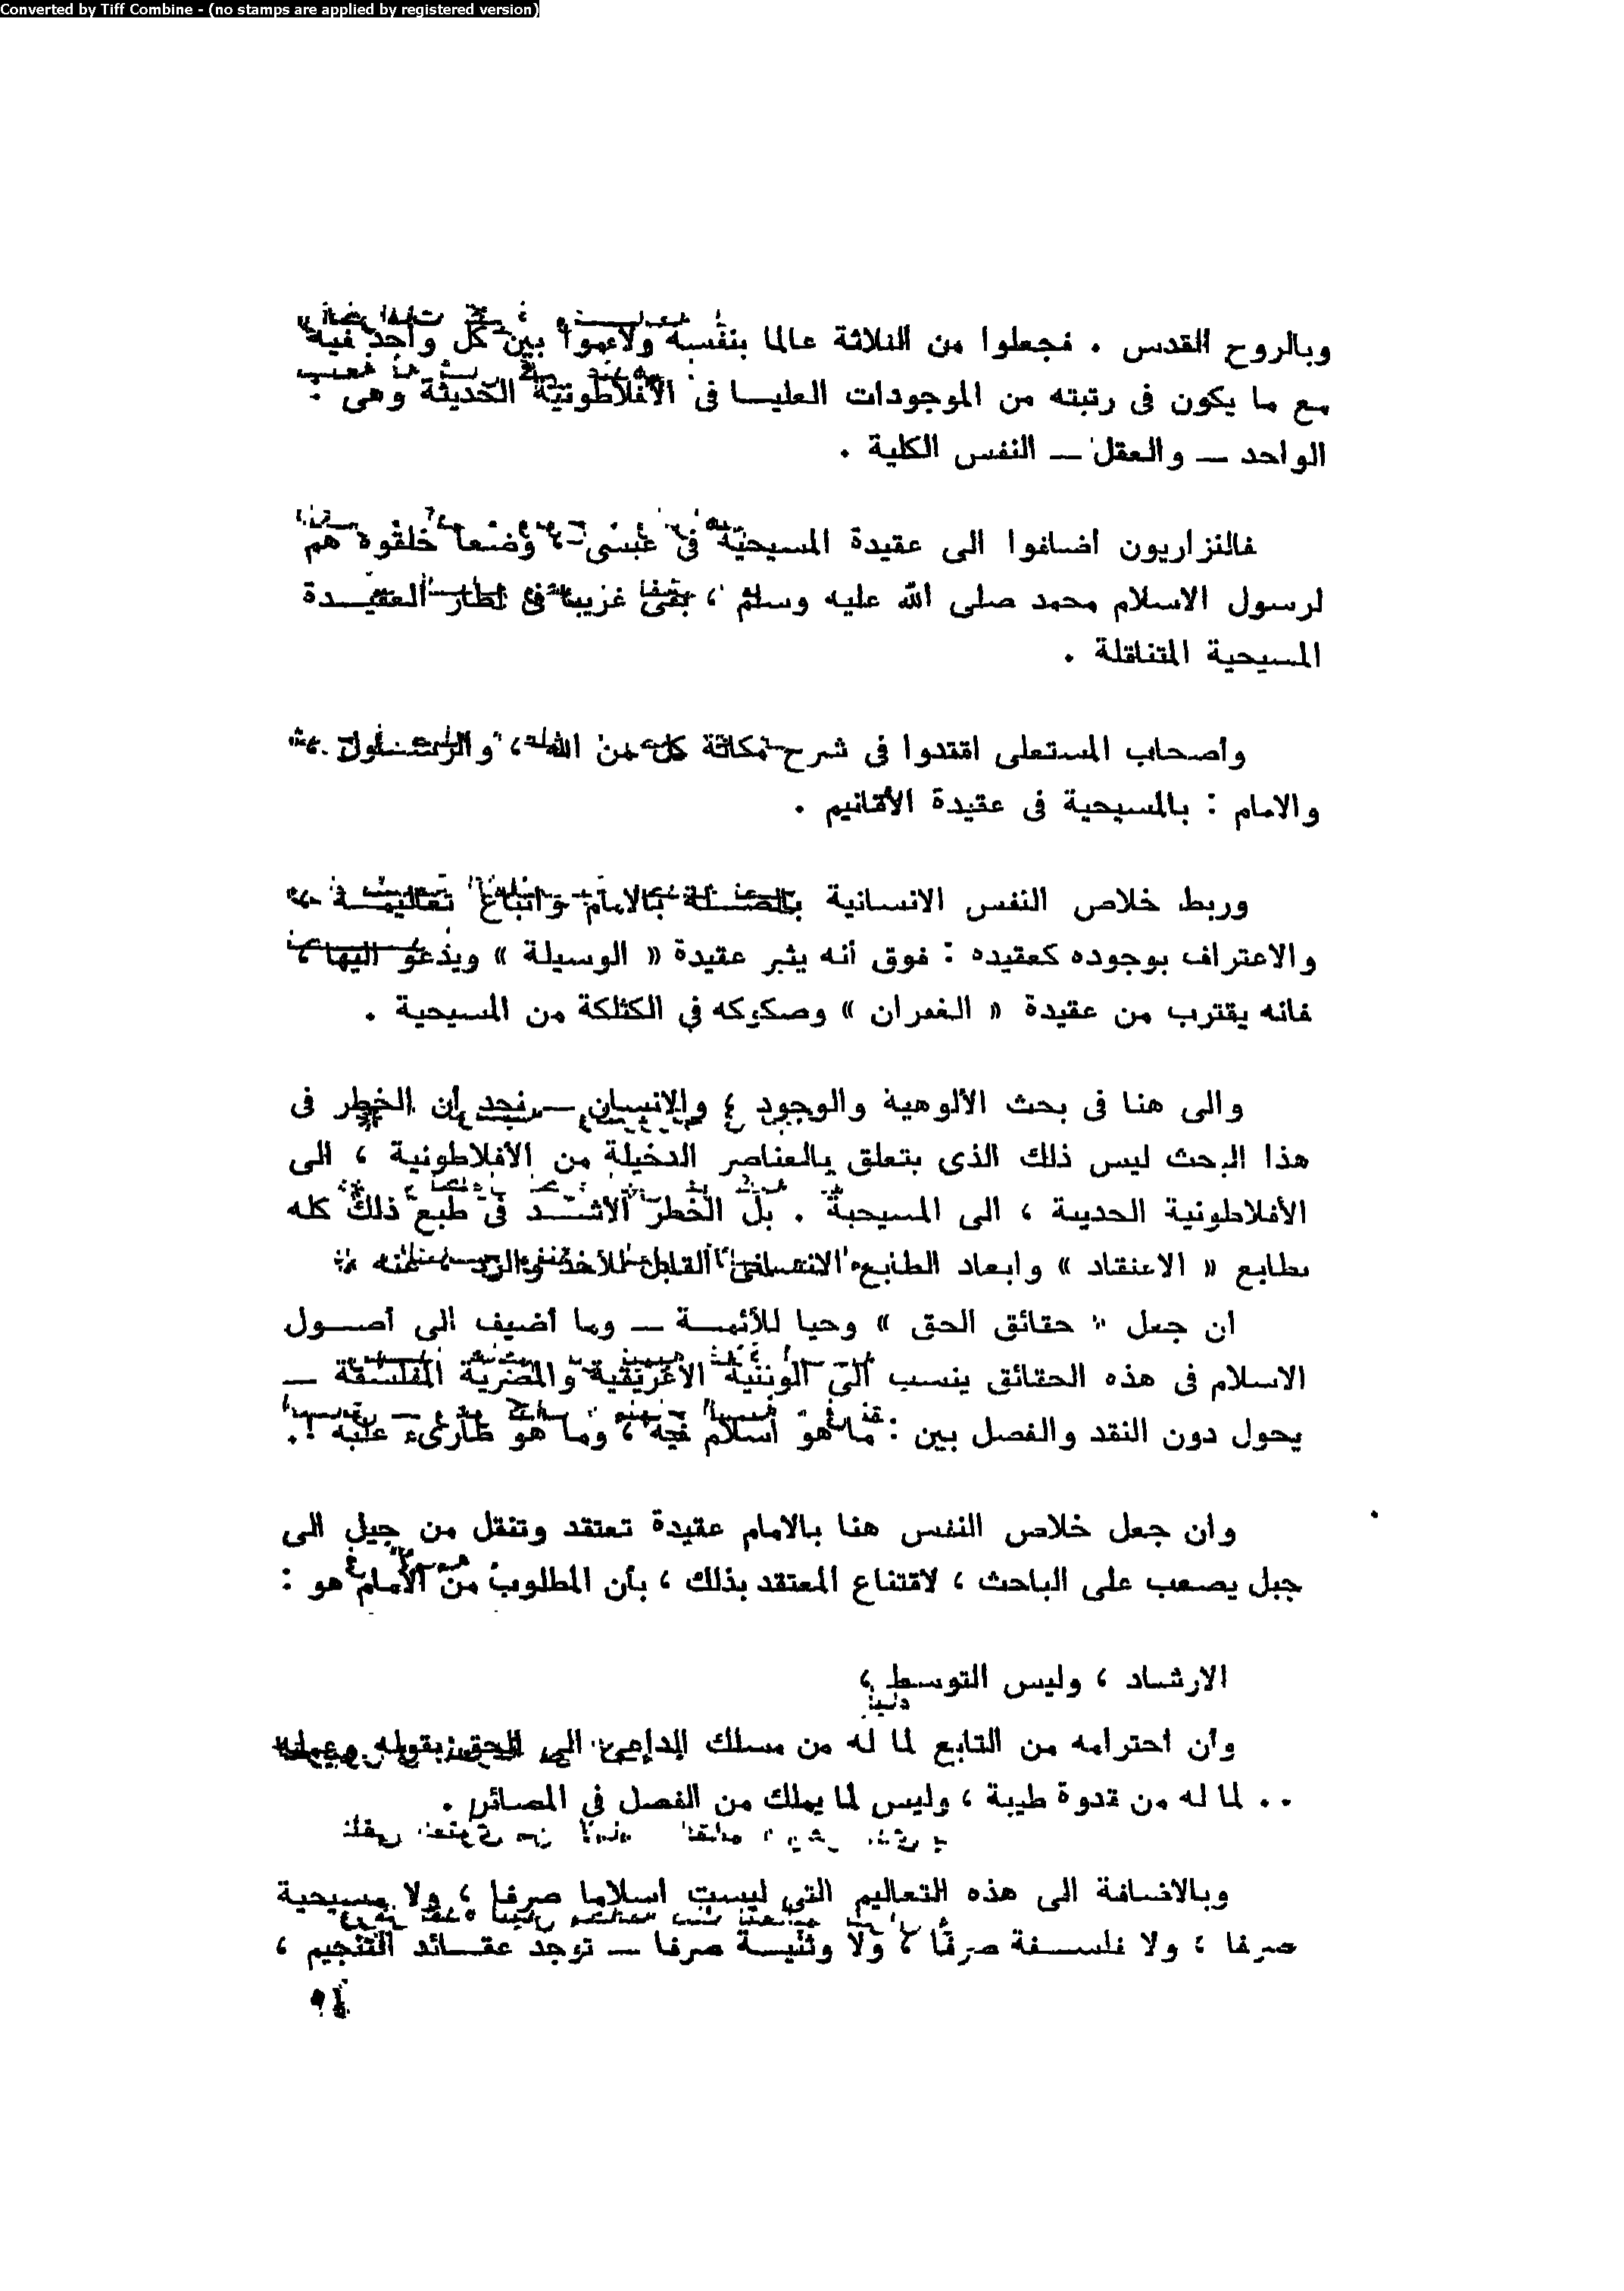 Converted by Tiff Combine - (no stamps are applied by registered version)
وبالروح القدس . فجعلوا من الثلاثة عالما بنفسه ولاعموا بين كل واحد فيه
مع ما يكون فى رتبته من الموجودات العليـا فى الأفلاطونية الحديثة وهى :
الواحد — والعقل — النفس الكلية .
فالنزاريون اضافوا الى عقيدة المسيحية فى عيسى ، وضعا خلقوه هم
لرسول الاسلام محمد صلى الله عليه وسلم ، بقى غريبا فى اطار العقيـدة
المسيحية المتناقلة .
وأصحاب المستعلى اقتدوا فى شرح مكانة كل من الله ، والرسـول
والامام : بالمسيحية فى عقيدة الأقانيم .
وربط خلاص النفس الانسانية بالصـلة بالامام واتباع تعاليمـه
والاعتراف بوجوده كعقيده : فوق أنه يثير عقيدة « الوسيلة » ويدعو اليها ،
فانه يقترب من عقيدة « الغفران » وصكوكه في الكثلكة من المسيحية .
والى هنا فى بحث الألوهية والوجود ، والانسان — نجد أن الخطر فى
هذا البحث ليس ذلك الذى يتعلق بالعناصر الدخيلة من الأفلاطونية ، الى
الأفلاطونية الحديثة ، الى المسيحية . بل الخطر الأشـد فى طبع ذلك كله
بطابع « الاعتقاد » وابعاد الطابع الانسانى القابل للأخذ والرد ، عنه
ان جعل « حقائق الحق » وحيا للأئمـة — وما أضيف الى أصـول
الاسلام فى هذه الحقائق ينسب الى الوثنية الاغريقية والمصرية المفلسفة —
يحول دون النقد والفصل بين : ما هو اسلام فيه ، وما هو طارىء عليه !.
وان جعل خلاص النفس هنا بالامام عقيدة تعتقد وتنقل من جيل الى
جيل يصعب على الباحث ، لاقتناع المعتقد بذلك ، بأن المطلوب من الأمام هو :
الارشاد ، وليس التوسط ،
وأن احترامه من التابع لما له من مسلك الداعى الى الحق بقوله وعمله
.. لما له من قدوة طيبة ، وليس لما يملك من الفصل في المصائر .
وبالاضافة الى هذه التعاليم التى ليست اسلاما صرفا ، ولا مسيحية
صرفا ، ولا فلسـفة صرفا ، ولا وثنيـة صرفا — توجد عقـائد التنجيم ،